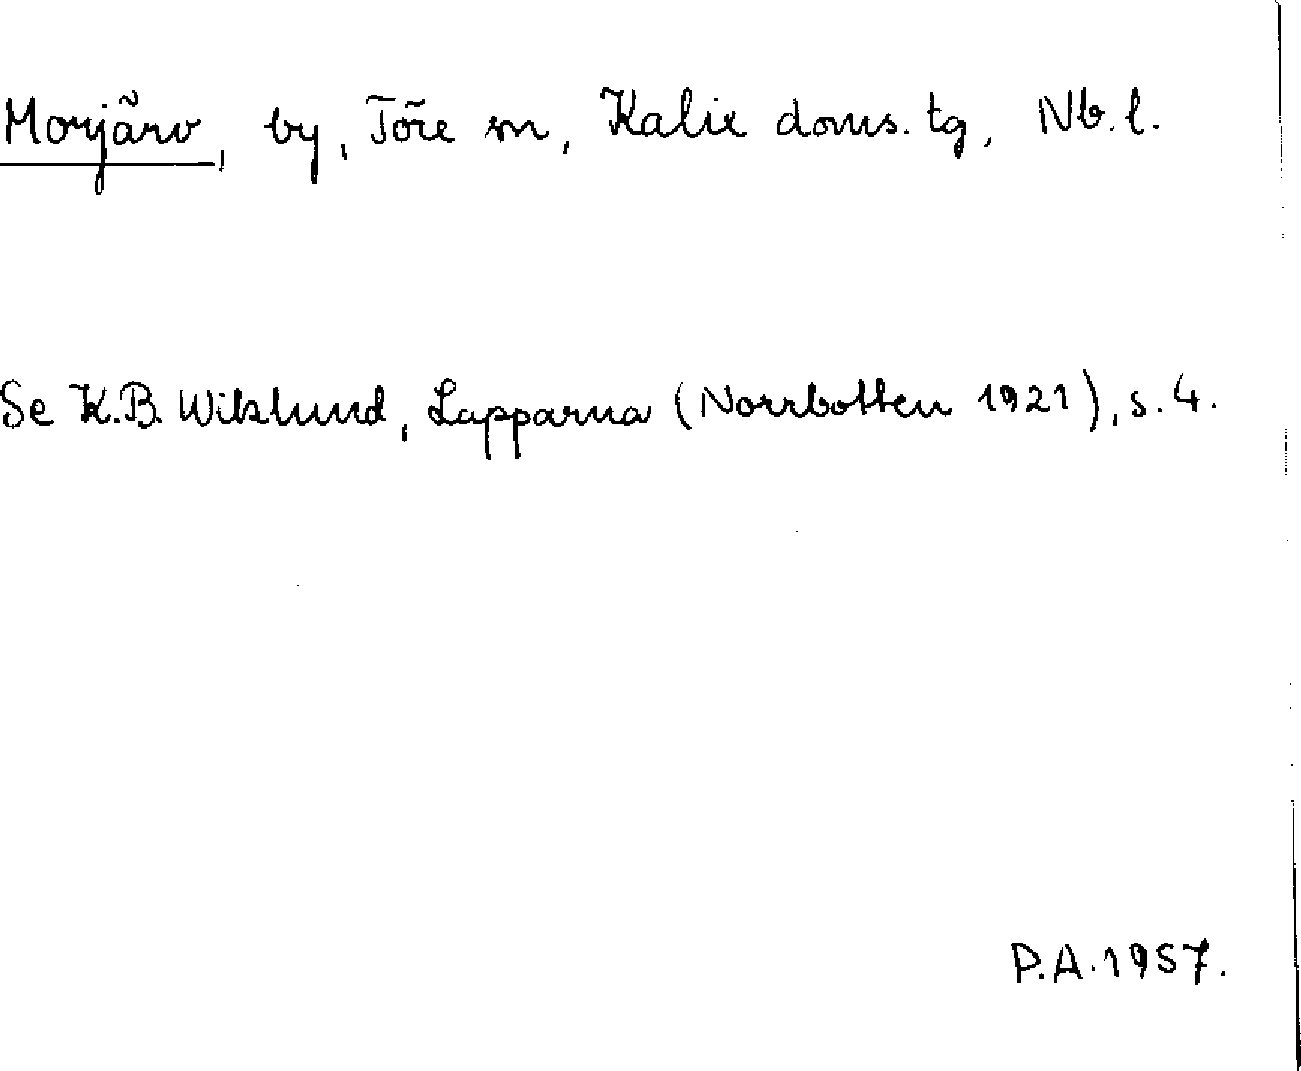 Morjärv, by, Töre sn, Kalix doms. tg, Nb. l.
Se K.B. Wiklund, Lapparna (Norrbotten 1921), s. 4.
P.A. 1957.